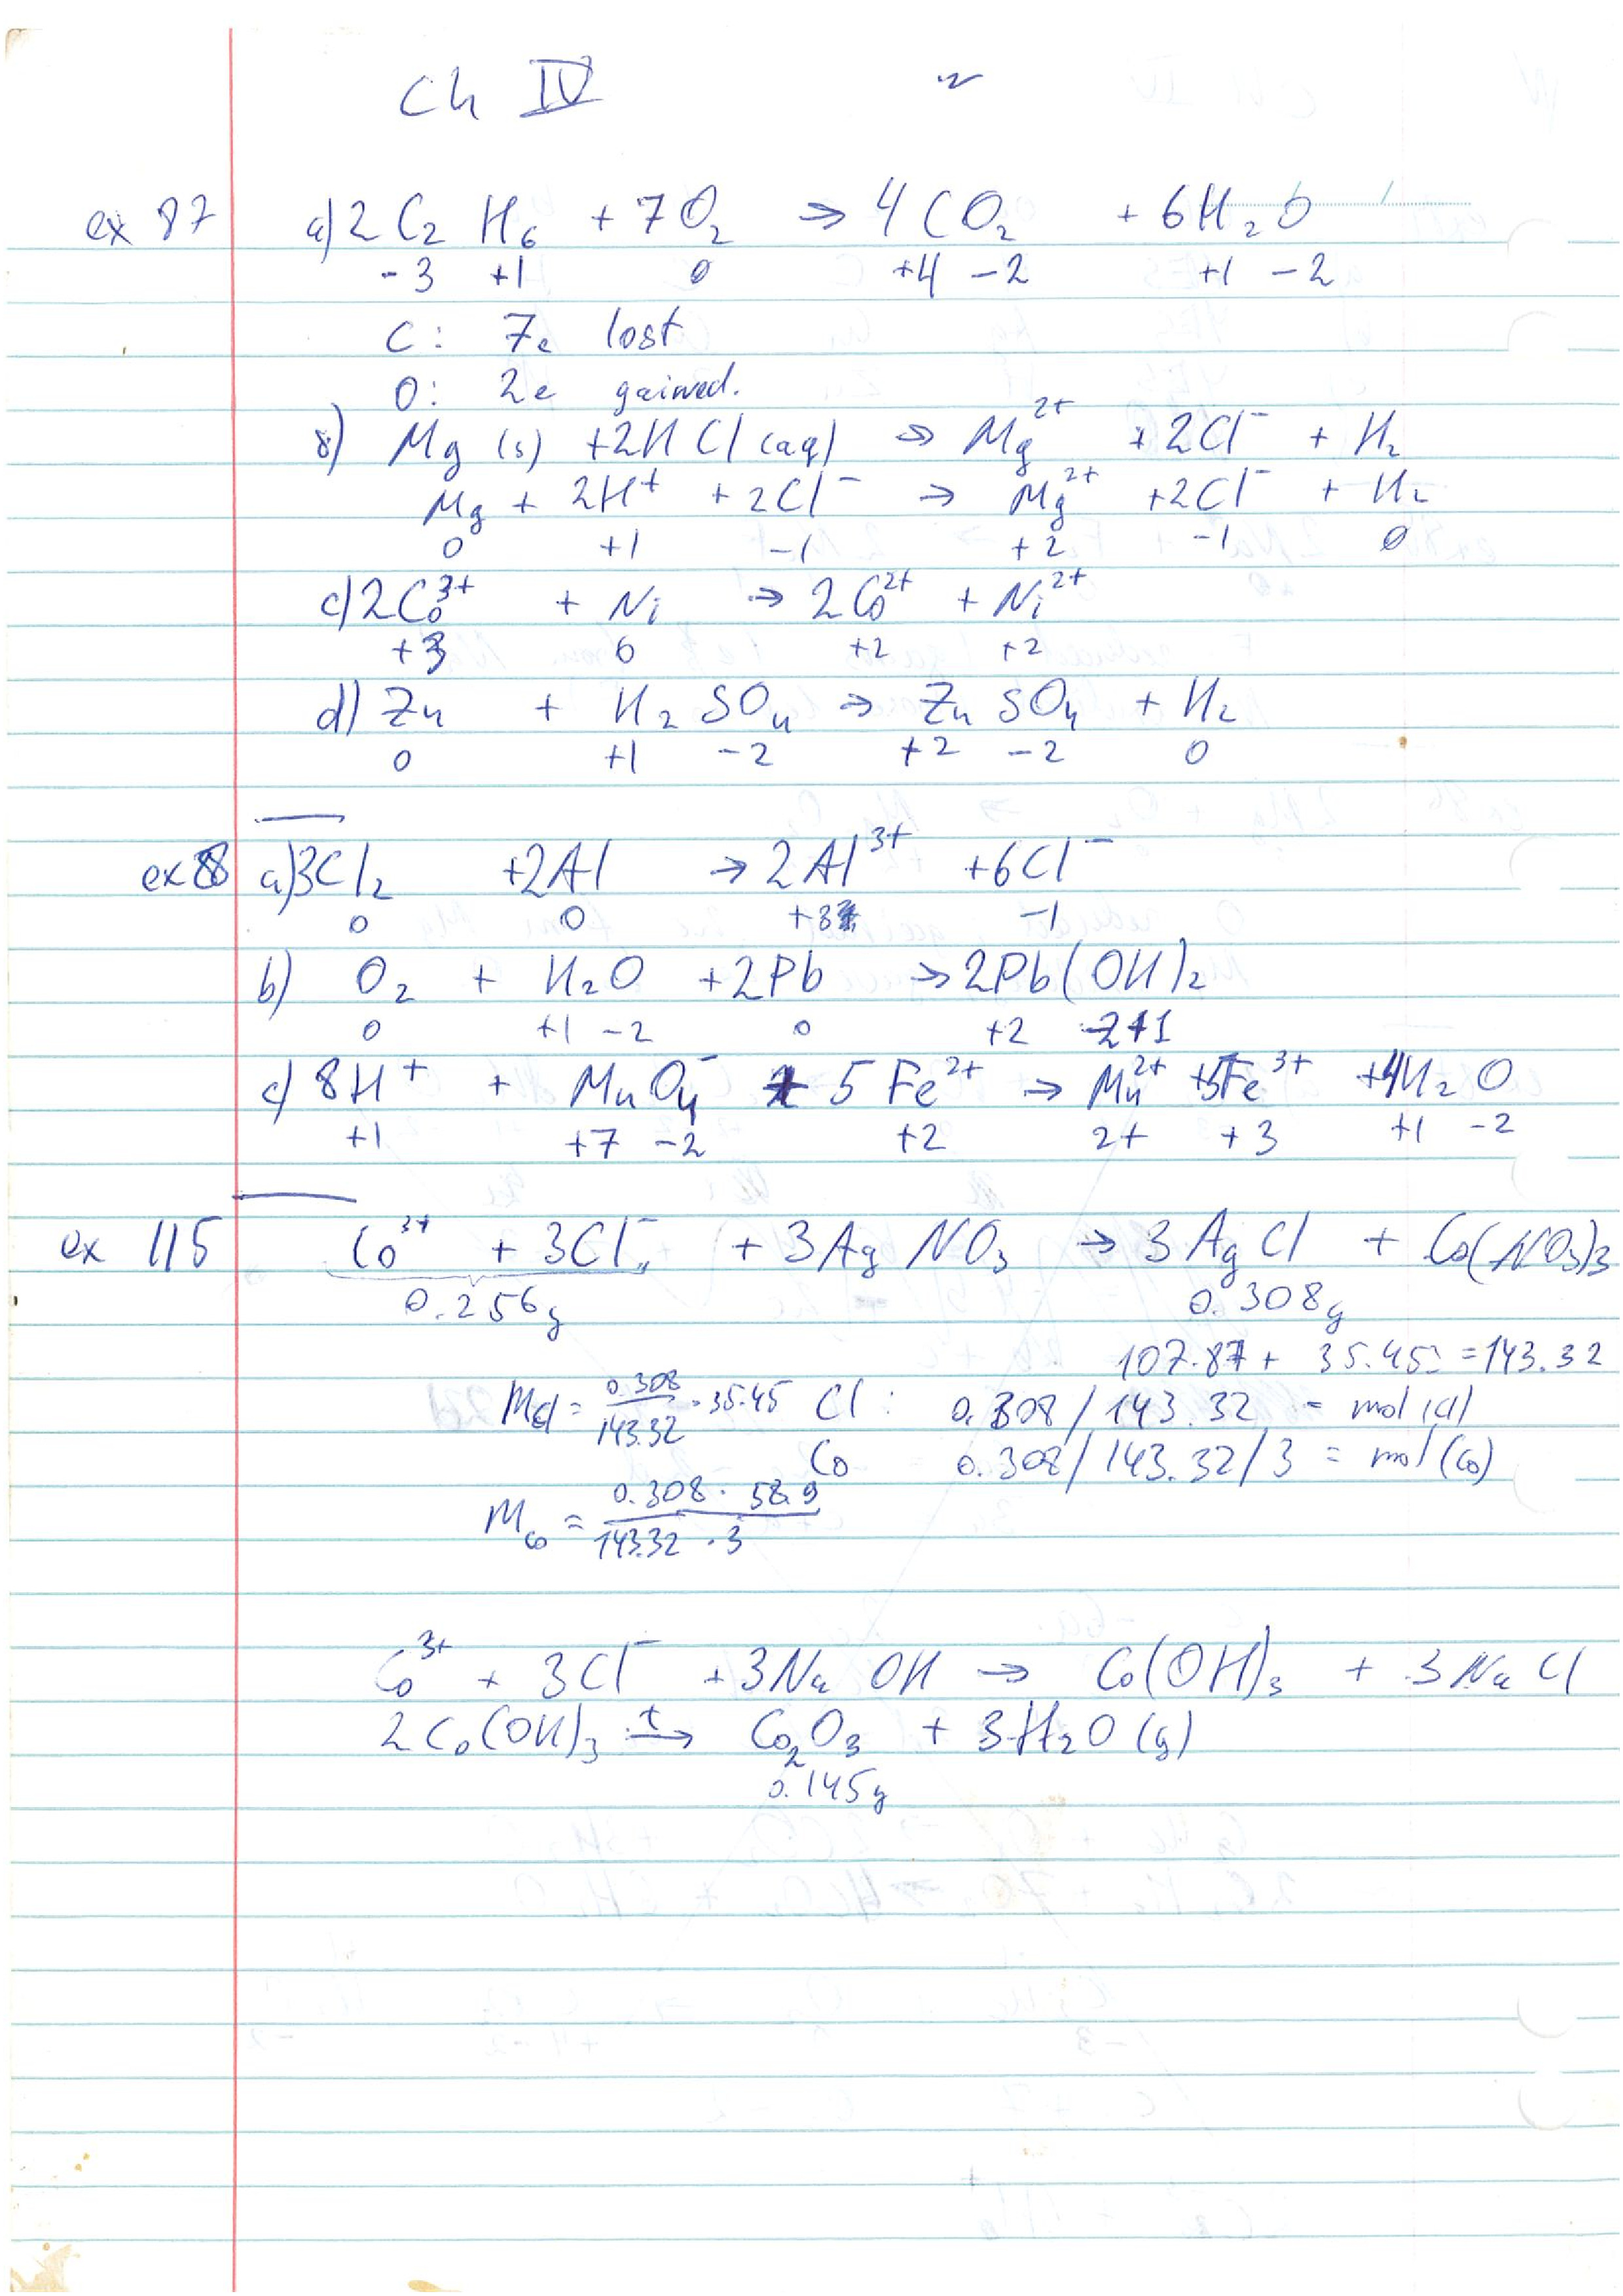 Ch IV
ex 87 a) 2 C₂ H₆ + 7 O₂ ⇒ 4 CO₂ + 6 H₂O
-3 +1 0 +4 -2 +1 -2
C: 7e lost
O: 2e gained.
b) Mg (s) + 2HCl (aq) ⇒ Mg²⁺ + 2Cl⁻ + H₂
Mg + 2H⁺ + 2Cl⁻ → Mg²⁺ + 2Cl⁻ + H₂
0 +1 -1 +2 -1 0
c) 2Co³⁺ + Ni → 2Co²⁺ + Ni²⁺
+3 0 +2 +2
d) Zn + H₂ SO₄ → Zn SO₄ + H₂
0 +1 -2 +2 -2 0
ex 88 a) 3Cl₂ + 2Al → 2Al³⁺ + 6Cl⁻
0 0 +3 -1
b) O₂ + H₂O + 2Pb → 2Pb(OH)₂
0 +1 -2 0 +2 -2 +1
c) 8H⁺ + MnO₄⁻ + 5 Fe²⁺ → Mn²⁺ + 5Fe³⁺ + 4H₂O
+1 +7 -2 +2 2+ +3 +1 -2
ex 115 Co³⁺ + 3Cl⁻ + 3Ag NO₃ → 3 AgCl + Co(NO₃)₃
0.256g 0.308g
107.87 + 35.45 = 143.32
M Cl = 0.308/143.32 · 35.45 Cl: 0.308 / 143.32 = mol (Cl)
Co 0.308 / 143.32 / 3 = mol (Co)
M Co = 0.308 · 58.9 / 143.32 · 3
Co³⁺ + 3Cl⁻ + 3Na OH → Co(OH)₃ + 3 Na Cl
2 Co(OH)₃ t→ Co₂O₃ + 3H₂O (g)
0.145g